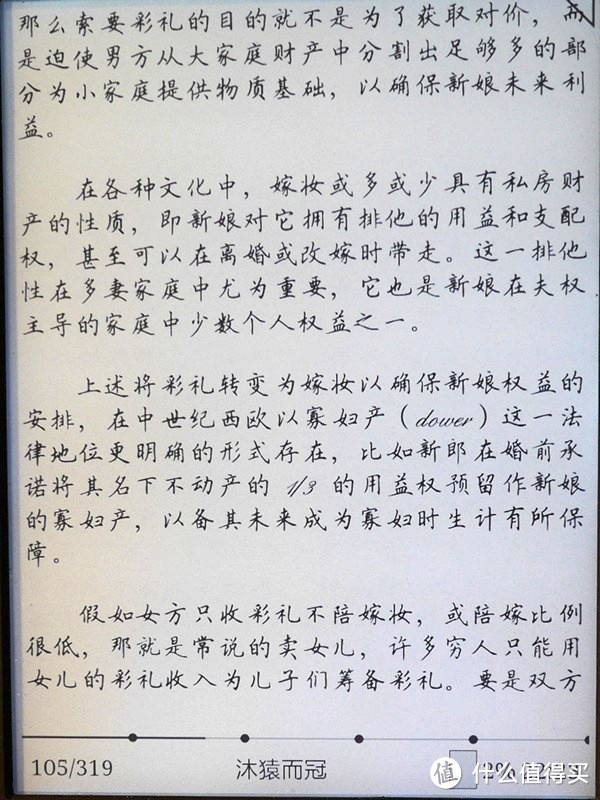 那么索要彩礼的目的就不是为了获取对价，而
是迫使男方从大家庭财产中分割出足够多的部
分为小家庭提供物质基础，以确保新娘未来利
益。
在各种文化中，嫁妆或多或少具有私房财
产的性质，即新娘对它拥有排他的用益和支配
权，甚至可以在离婚或改嫁时带走。这一排他
性在多妻家庭中尤为重要，它也是新娘在夫权
主导的家庭中少数个人权益之一。
上述将彩礼转变为嫁妆以确保新娘权益的
安排，在中世纪西欧以寡妇产（dower）这一法
律地位更明确的形式存在，比如新郎在婚前承
诺将其名下不动产的 1/3 的用益权预留作新娘
的寡妇产，以备其未来成为寡妇时生计有所保
障。
假如女方只收彩礼不陪嫁妆，或陪嫁比例
很低，那就是常说的卖女儿，许多穷人只能用
女儿的彩礼收入为儿子们筹备彩礼。要是双方
105/319 沐猿而冠
值 什么值得买